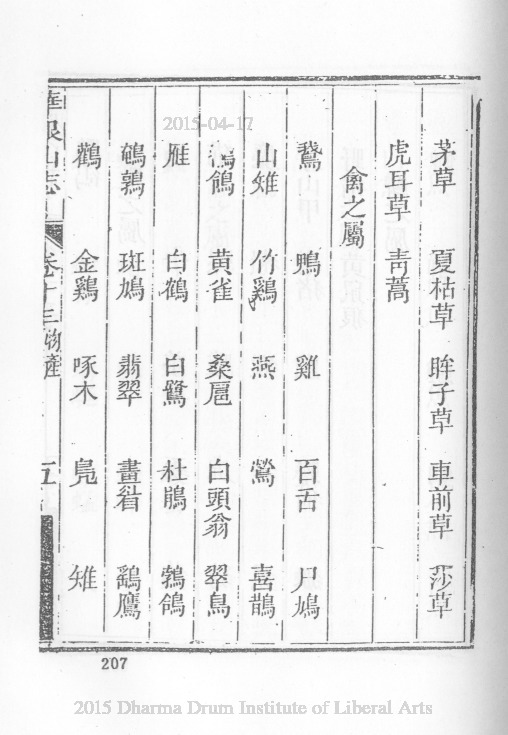 茅草 夏枯草 眸子草 車前草 莎草
虎耳草 靑蒿
禽之屬
鵞 鴨 雞 百舌 尸鳩
山雉 竹鷄 燕 鶯 喜鵲
鴿 黃雀 桑扈 白頭翁 翠鳥
雁 白鶴 白鷺 杜鵑 鵓鴿
鵪鶉 斑鳩 翡翠 畫眉 鷂鷹
鸛 金鷄 啄木 鳬 雉
華銀山志 卷十三 物產 五
2015-04-17
207
2015 Dharma Drum Institute of Liberal Arts